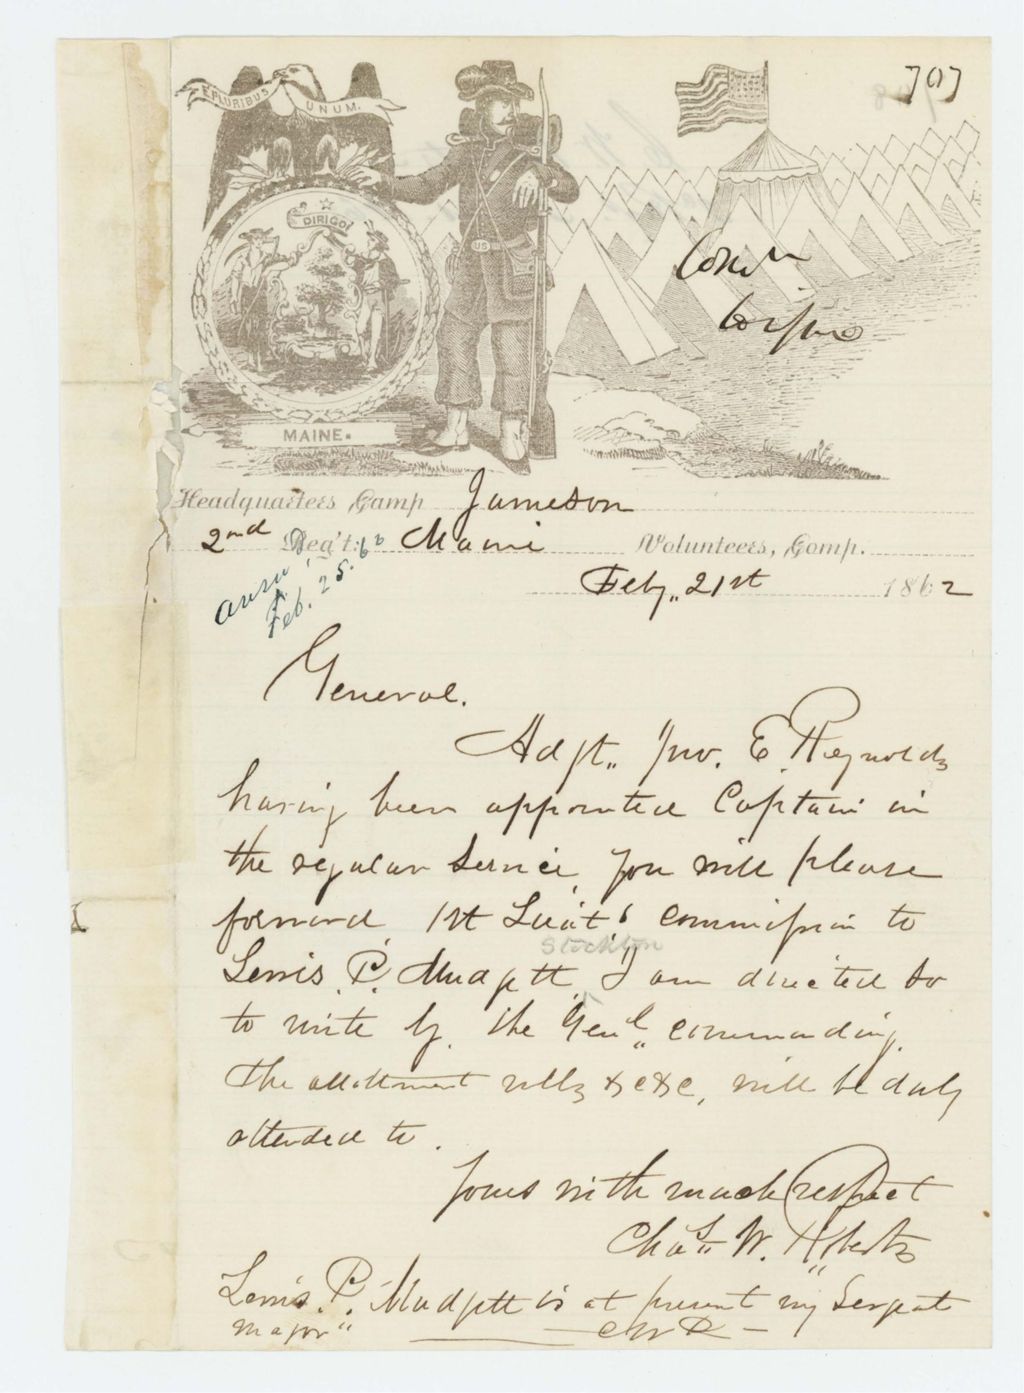 707
E PLURIBUS UNUM.
DIRIGO
US
MAINE.
Headquarters Camp Jameson
2nd Reg't: Maine Volunteers, Comp.
Feby,, 21st 1862
Feb. 25. 62
General.
Adjt,, Jno. E. Reynolds
having been appointed Captain in
the regular Service, you will please
forward 1st Lieut's commission to
Stockton
Lewis. P. Mudgett, I am directed so
to write by. the Genl,, commanding.
The allottment rolls &c&c, will be duly
attended to.
Yours with much respect
Chas,, W. Roberts
Lewis. P. Mudgett is at present my Sergeat
Major"
CWR